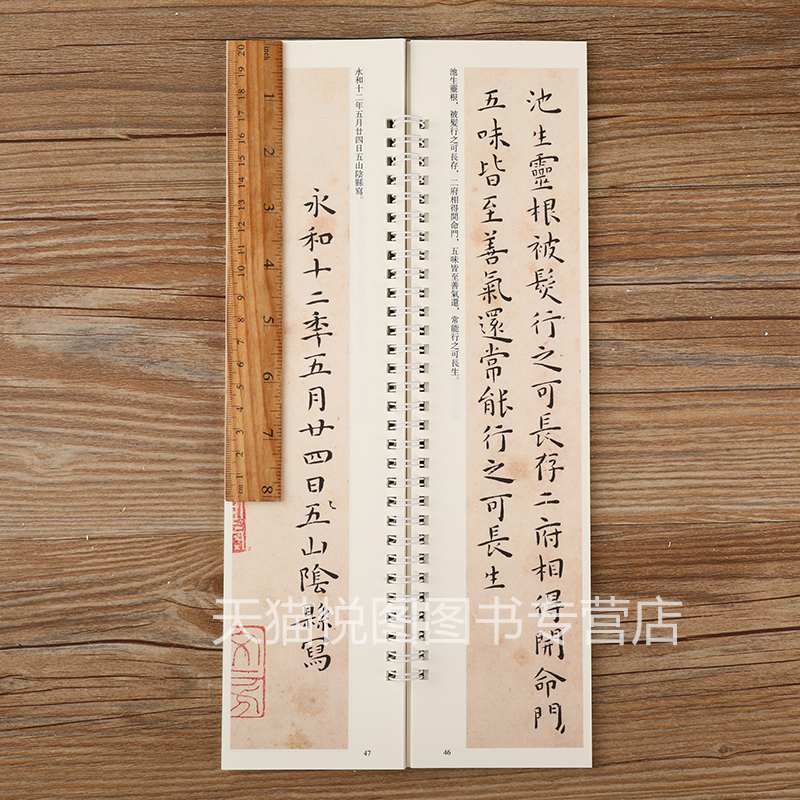 池生靈根被髮行之可長存二府相得開命門
五味皆至善氣還常能行之可長生
池生靈根，被髮行之可長存，二府相得開命門，五味皆至善氣還，常能行之可長生。
46
永和十二年五月廿四日五山陰縣寫。
永和十二年五月廿四日五山陰縣寫
47
inch
1
2
3
4
5
6
7
8
20
19
18
17
16
15
14
13
12
11
10
9
8
7
6
5
4
3
2
1
cm
天猫悦图图书专营店